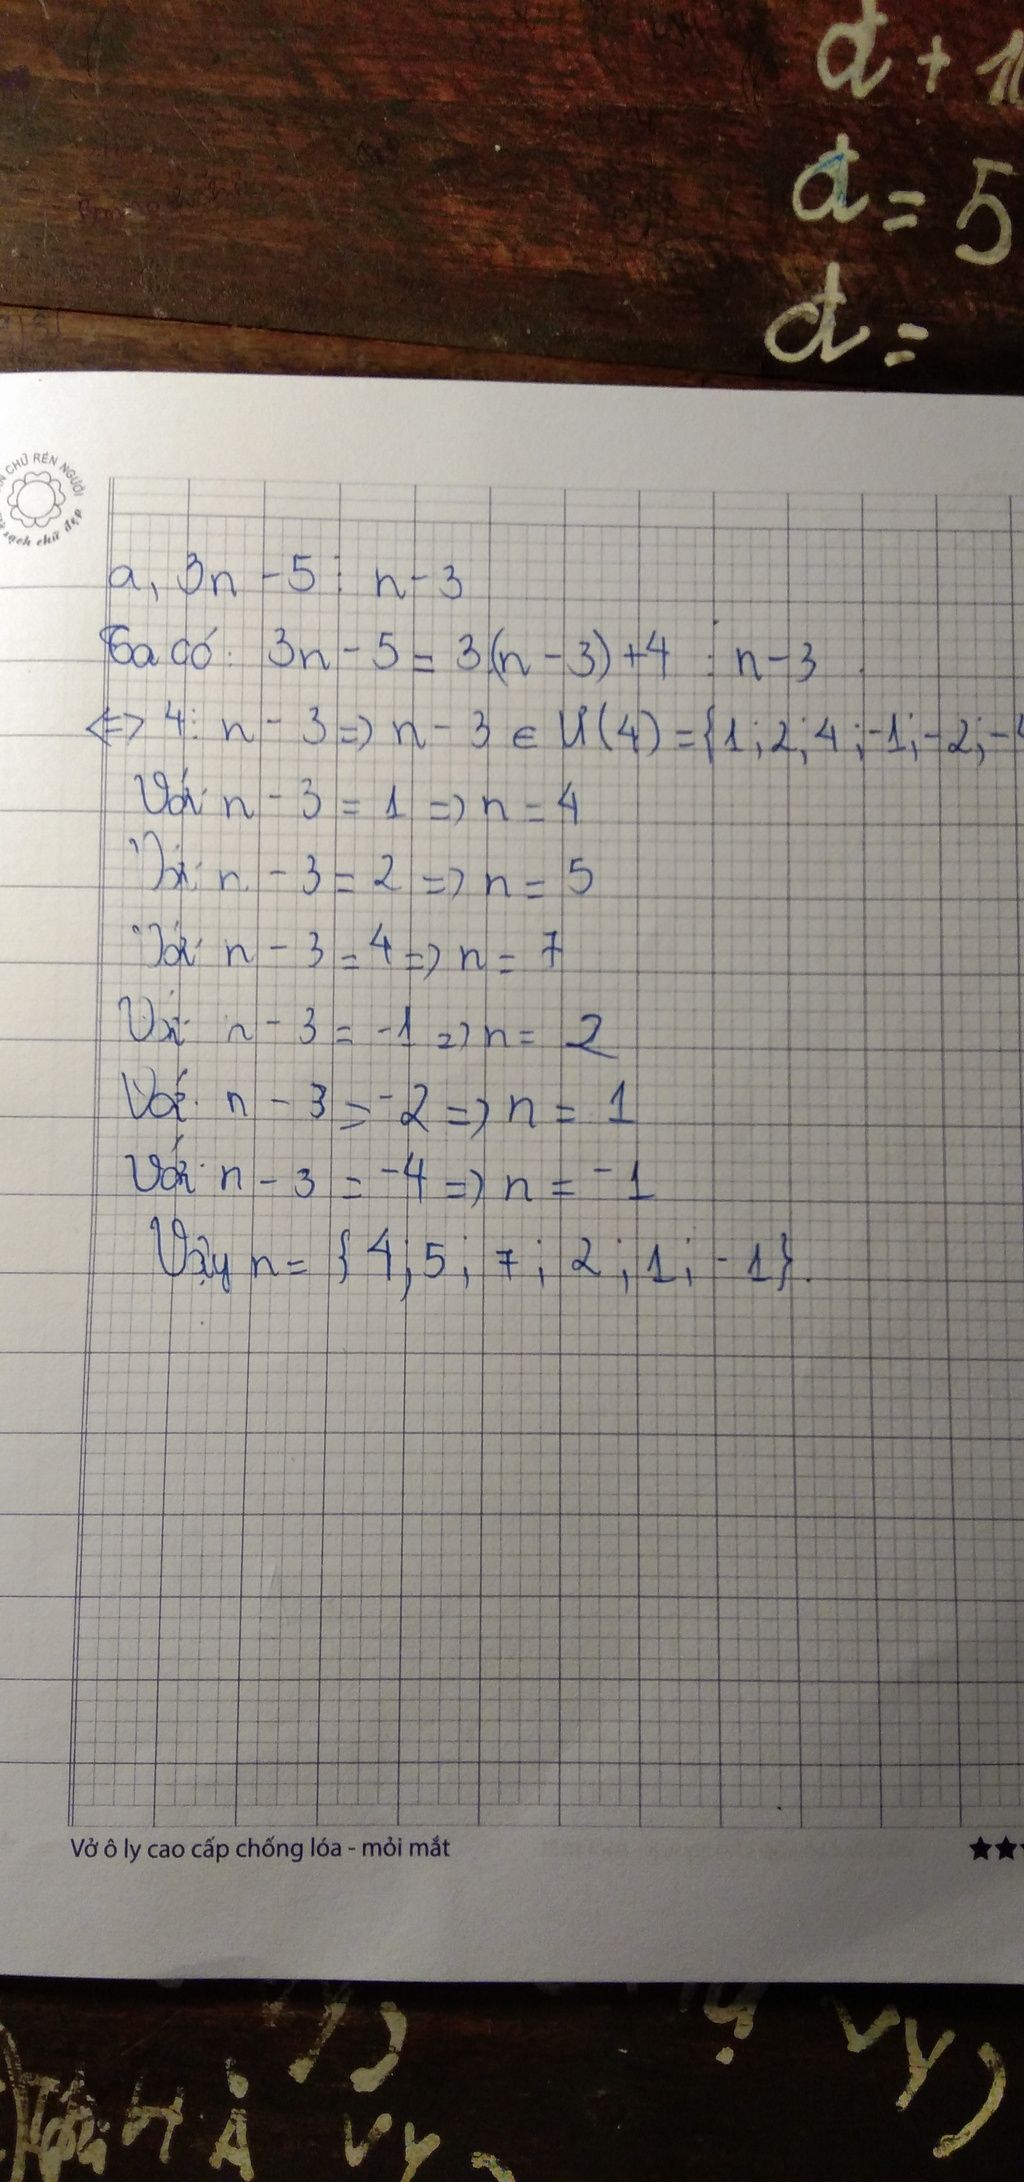 d + 1
a = 5
d =
CHỮ RÈN NGƯỜI
sạch chữ đẹp
a, 3n - 5 ⋮ n - 3
Ta có: 3n - 5 = 3.(n - 3) + 4 ⋮ n - 3
<=> 4 ⋮ n - 3 => n - 3 ∈ Ư(4) = {1; 2; 4; -1; -2; -4
Với n - 3 = 1 => n = 4
Với n - 3 = 2 => n = 5
Với n - 3 = 4 => n = 7
Với n - 3 = -1 => n = 2
Với n - 3 = -2 => n = 1
Với n - 3 = -4 => n = -1
Vậy n = {4; 5; 7; 2; 1; -1}.
Vở ô ly cao cấp chống lóa - mỏi mắt
★★
Vy
HÀ Vy